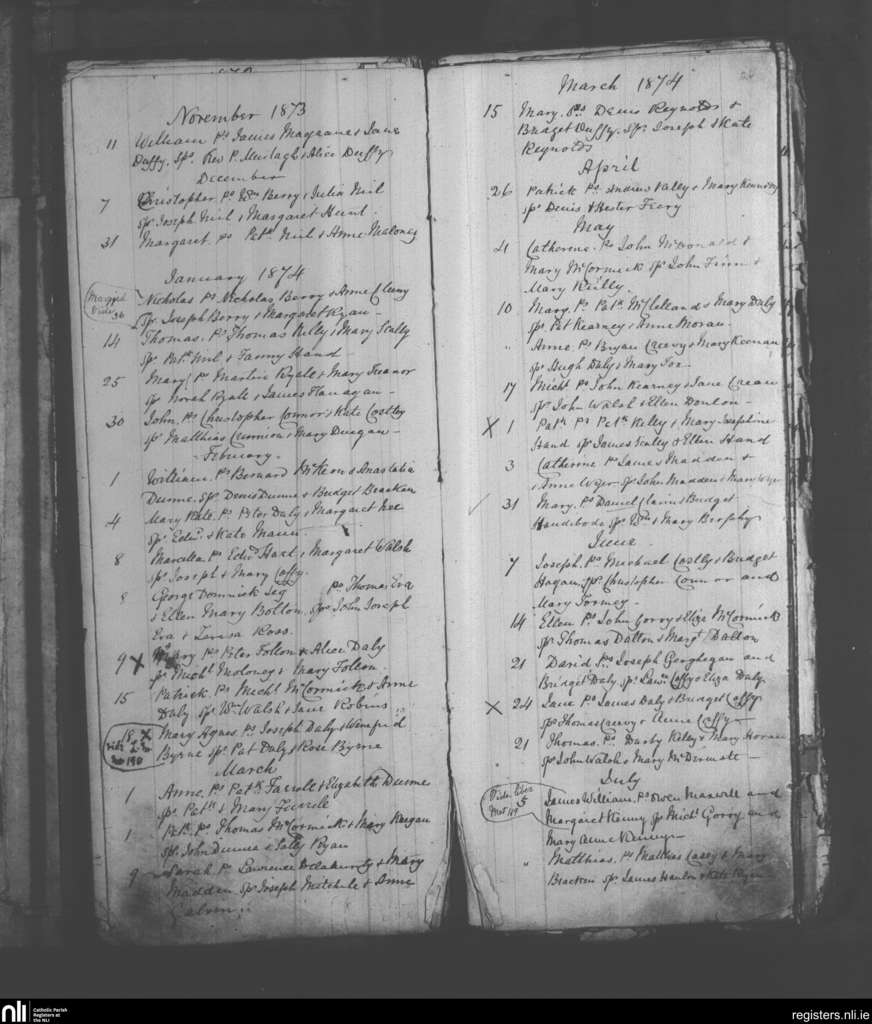 November 1873
11 William Ps James Magrame & Jane
Duffy. Sps. Rev P. Murtagh & Alice Duffy
December
7 Christopher Ps Wm Berry & Julia Neil
Sps Joseph Neil & Margaret Hunt.
31 Margaret Ps Patk Neil & Anne Maloney
January 1874
Married Vide 36
Nicholas Ps Nicholas Berry & Anne
Sps. Joseph Berry & Margaret Ryan
14 Thomas. Ps Thomas Kelly & Mary Scally
Sps Patk Neil & Fanny Hand
25 Mary Ps Martin Ryall & Mary Treanor
Sps Norah Ryall & James Flanagan
30 John. Ps Christopher Connor & Kate Costley
Sps Matthias & Mary Duegan
February
1 William. Ps Bernard McKeon & Anastatia
Dunne. Sps Denis Dunne & Bridget Bracken
4 Mary Kate. Ps Peter Daly & Margaret
Sps. Edwd & Kate Mann
8 Marcella. Ps Edwd Hart & Margaret Walsh
Sps Joseph & Mary Coffy
8 George Dominick Ps Thomas Eva
& Ellen Mary Bolton. Sps John Joseph
Eva & Teresa Ross
9 X Mary Ps Peter Follon & Alice Daly
Sps Michl Moloney & Mary Follon
15 Patrick Ps Michl McCormick & Anne
Daly Sps Wm Walsh & Jane Robins
18 X Mary Agnes. Ps Joseph Daly & Winefrid
Vide 190 Byrne Sps Pat Daly & Rose Byrne
March
1 Anne. Ps Patk Farrell & Elizabeth Dunne
Sps. Patk & Mary Farrell
1 Patk. Ps Thomas McCormick & Mary Keegan
Sps. John Dunne & Sally Ryan
9 Sarah Ps Lawrence Delahunty & Mary
Madden Sps Joseph Mitchele & Anne
Galvin
March 1874
15 Mary. Ps. Denis Reynolds &
Bridget Duffy. Sps Joseph & Kate
Reynolds
April
26 Patrick Ps. Andrew Kelly & Mary Kennedy
Sps Denis & Hester Feery
May
4 Catherine. Ps John McDonald &
Mary McCormick Sps John Finn &
Mary Reilly
10 Mary. Ps Patk McClelland & Mary Daly
Sps Pat Kearney & Anne Moran.
" Anne. Ps Bryan Creevy & Mary Keenan
Sps Hugh Daly & Mary Foe.
17 Michl Ps John Kearney & Jane Crean
Sps John Walsh & Ellen Donlon
X 1 Patk Ps Patk Kelly & Mary Josephine
Hand Sps James Scally & Ellen Hand
3 Catherine Ps James Madden &
& Anne Wyer Sps John Madden & Mary Wyer
31 Mary. Ps Daniel & Bridget
Sps Wm & Mary Brophy
June
7 Joseph. Ps Michael Costly & Bridget
Hogan. Sps Christopher Connor and
Mary Tormey
14 Ellen Ps. John Gorry & Eliza McCormick
Sps Thomas Dalton & Margt Dalton
21 David Ps Joseph Geoghegan and
Bridget Daly Sps Lawn. Coffy & Eliza Daly
X 24 Jane Ps James Daly & Bridget Coffy
Sps Thomas Creevy & Anne Coffy
21 Thomas. Ps Darby Kiley & Mary Horan
Sps John Walsh & Mary McDermott
July
Vide Liber 5
James William. Ps Owen Maxwell and
Margaret Kenny Sps Michl Gorry and
Mary Anne
" Matthias. Ps Matthias Casey & Mary
Bracken Sps James Hanlon & Kate Ryan
nli
Catholic Parish
Registers at
the NLI
registers.nli.ie